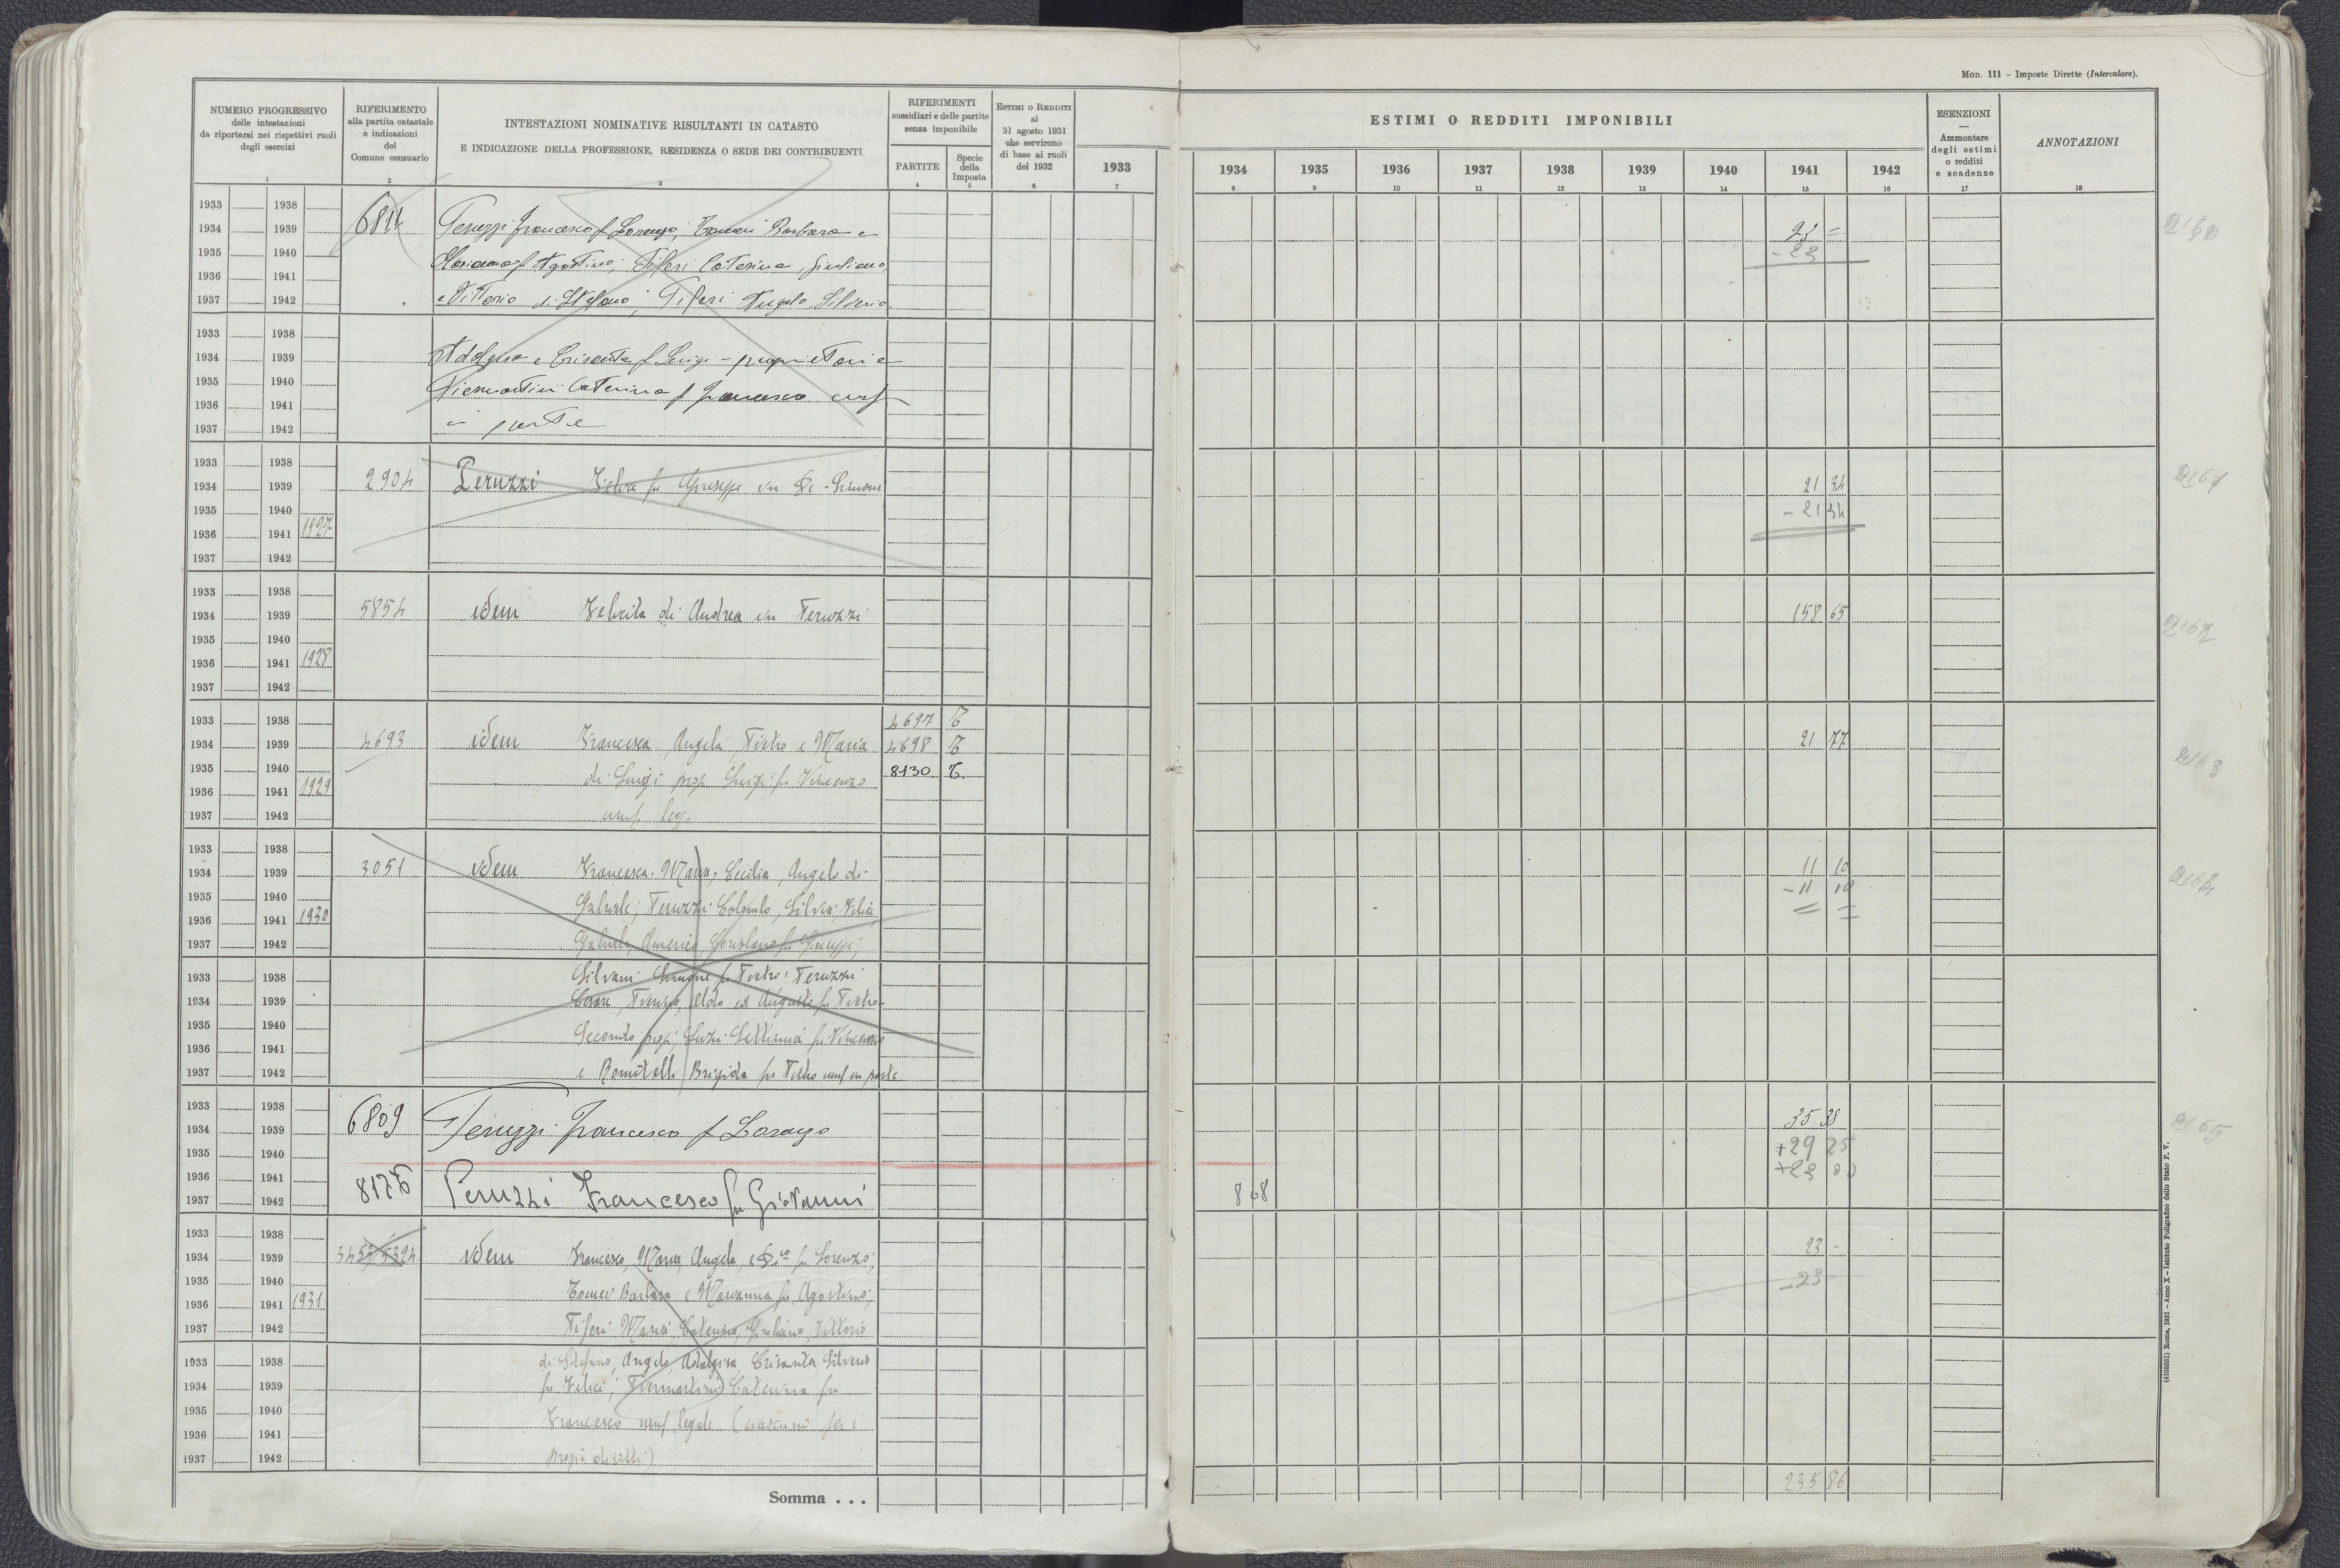 MOD. 111 – Imposte Dirette (Intercalare).
NUMERO PROGRESSIVO
delle intestazioni
da riportarsi nei rispettivi ruoli
degli esercizi
1
RIFERIMENTO
alla partita catastale
e indicazioni
del
Comune censuario
2
INTESTAZIONI NOMINATIVE RISULTANTI IN CATASTO
E INDICAZIONE DELLA PROFESSIONE, RESIDENZA O SEDE DEI CONTRIBUENTI
3
RIFERIMENTI
sussidiari e delle partite
senza imponibile
PARTITE
4
Specie
della
Imposta
5
ESTIMI O REDDITI
al
31 agosto 1931
che servirono
di base ai ruoli
del 1932
6
1933
7
ESTIMI O REDDITI IMPONIBILI
1934 1935 1936 1937 1938 1939 1940 1941 1942
8 9 10 11 12 13 14 15 16
ESENZIONI
—
Ammontare
degli estimi
o redditi
e scadenze
17
ANNOTAZIONI
18
1933 1938
1934 1939 6814 Peruzzi Francesco f Lorenzo, Tomei Barbara e 23 = 2160
1935 1940 Marianna f Agostino; Tiferi Caterina, Giuliano, - 23
1936 1941
1937 1942 e Vittorio di Stefano; Tiferi Angelo, Silverio,
1933 1938
1934 1939 Adalgisa e Crisanta f Luigi - proprietari e
1935 1940 Piermartini Caterina f Francesco usuf
1936 1941
1937 1942 in parte
1933 1938
1934 1939 2904 Peruzzi fu Giuseppe in De-Simoni 21 34 2161
1935 1940 - 21 34
1936 1941 1927
1937 1942
1933 1938
1934 1939 5854 idem Felicita di Andrea in Peruzzi 158 65 2162
1935 1940
1936 1941 1928
1937 1942
1933 1938 4697 T
1934 1939 4693 idem Francesca Angela Pietro e Maria 4698 T 21 77 2163
1935 1940 di Luigi prop Luigi fu Vincenzo 8130 T.
1936 1941 1929
1937 1942 usuf. leg.
1933 1938
1934 1939 3051 idem Francesca, Maria, Cecilia, Angelo di 11 10 2164
1935 1940 - 11 10
1936 1941 1930 Gabriele; Peruzzi Colombo, Silvia, Felice
1937 1942 Gabriele, Americo, fu Giuseppe;
1933 1938 Silvani fu Pietro; Peruzzi
1934 1939 Cesare, Aldo ed Augusto fu Pietro
1935 1940 Secondo prop; Settimia fu Vincenzo
1936 1941
1937 1942 e Romitelli Brigida fu Pietro usuf in parte
1933 1938
1934 1939 6809 Peruzzi Francesco f Lorenzo 35 38 2165
1935 1940 + 29 25
1936 1941 + 23 00
1937 1942 8176 Peruzzi Francesco fu Giovanni 8 68
1933 1938
1934 1939 3453/5324 idem Francesco, Maria, Angela, e fu Lorenzo; 23 -
1935 1940 - 23 -
1936 1941 1931 Tomei Barbara e Marianna fu Agostino;
1937 1942 Tiferi Maria, Caterina, Giuliano, Vittorio
1933 1938 di Stefano, Angelo, Adalgisa Crisanta Silverio
1934 1939 fu Felice; Piermartini Caterina fu
1935 1940
1936 1941 Francesco usuf legale (ciascuno per i
1937 1942 propri diritti)
Somma . . . 235 86
(4109881) Roma, 1931 – Anno X – Istituto Poligrafico dello Stato P. V.